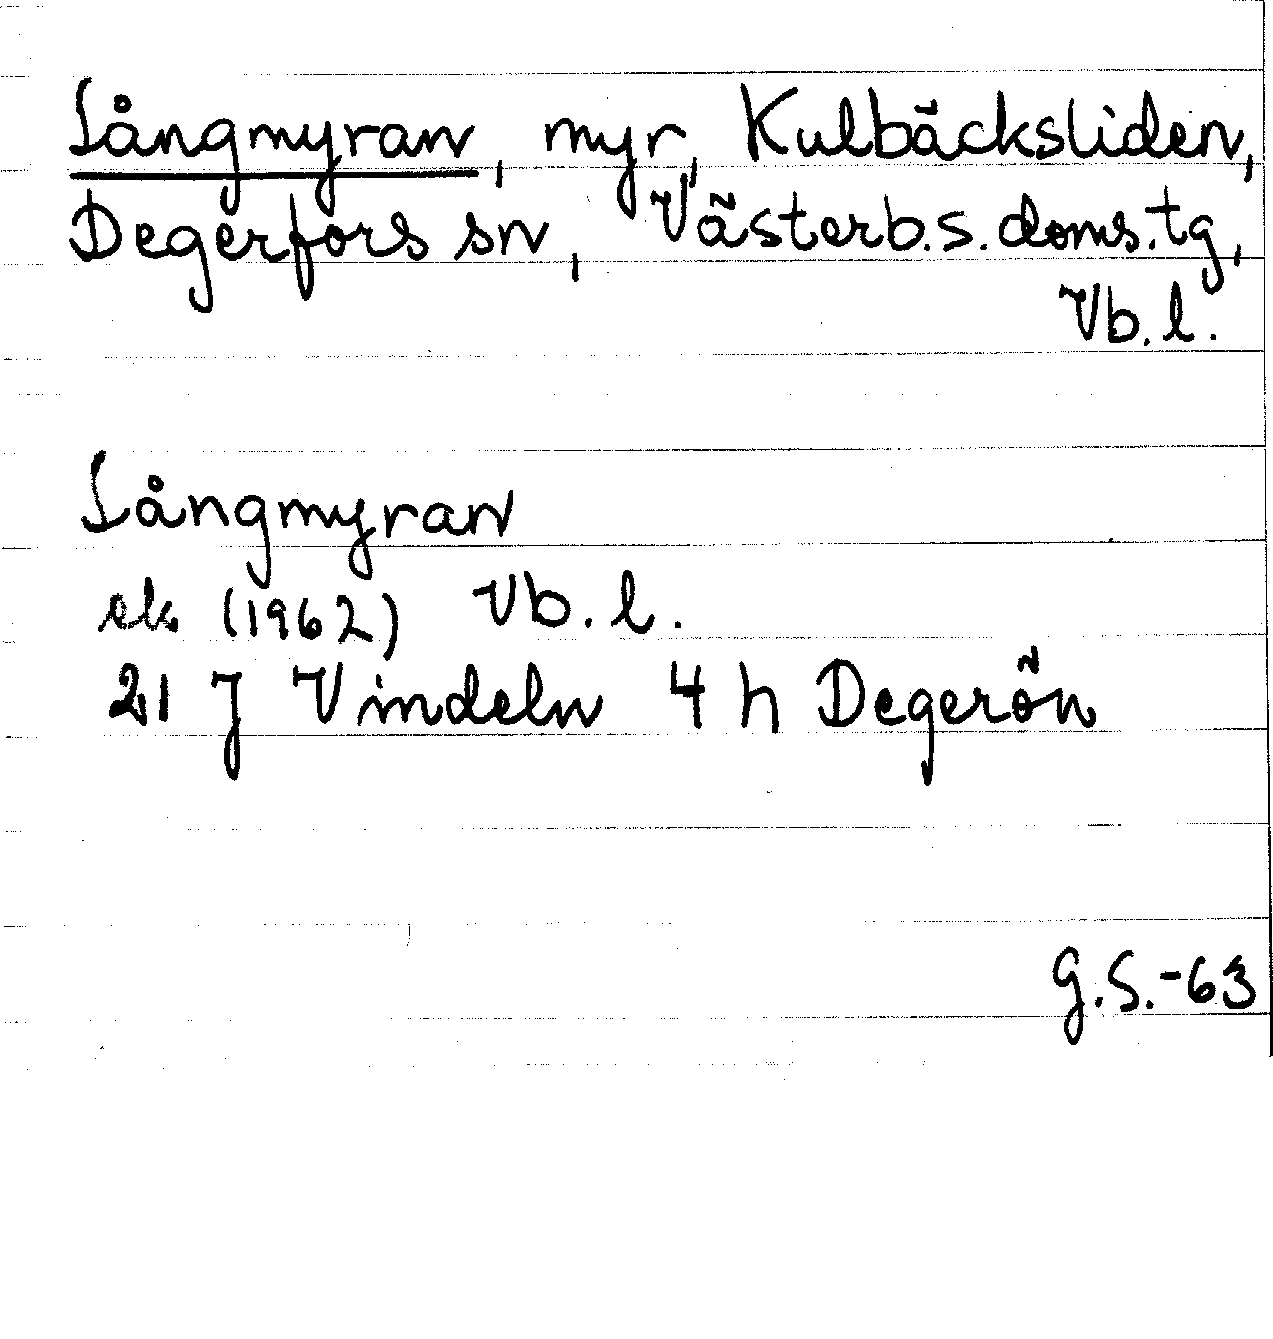 Långmyran, myr, Kulbäcksliden,
Degerfors sn, Västerb.s.doms.tg,
Vb.l.
Långmyran
ek (1962) Vb.l.
21 J Vindeln 4 h Degerön
G.S.-63